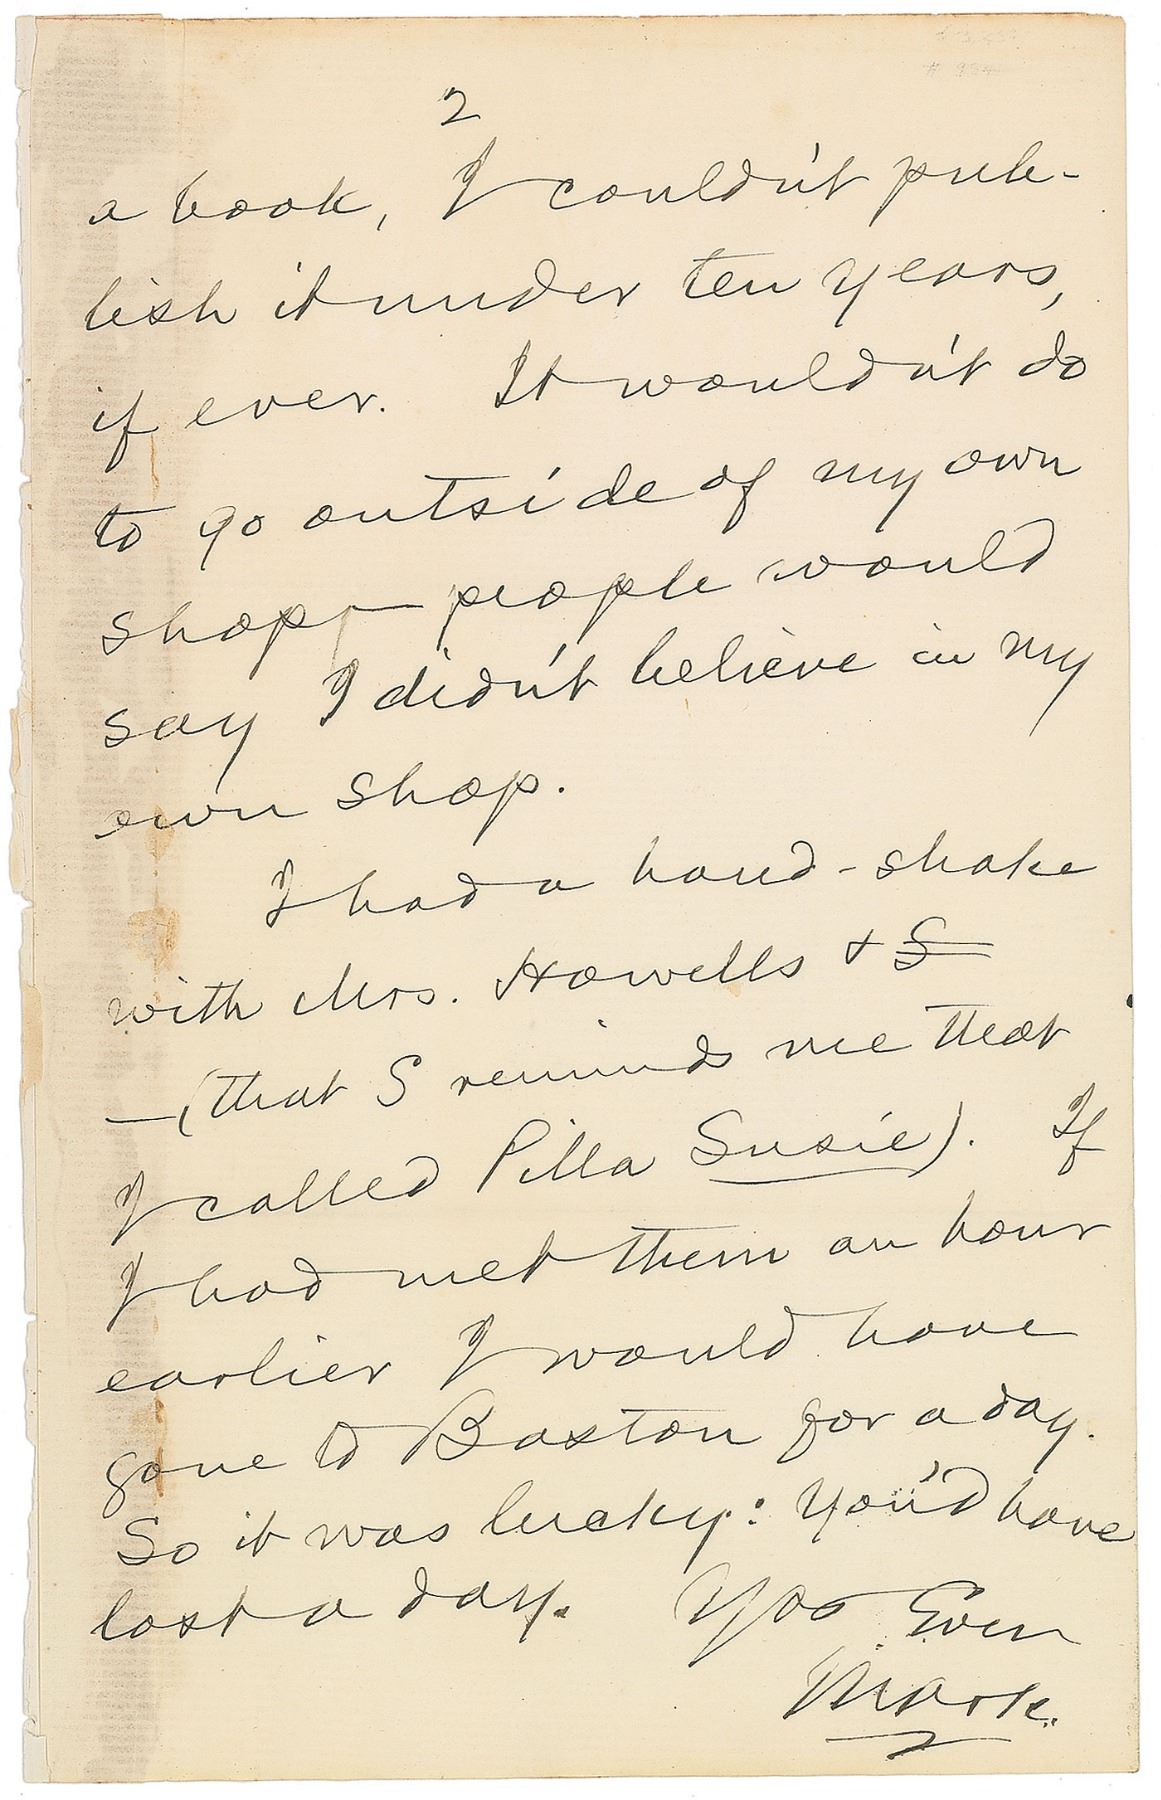 2
a book, I couldn't pub-
lish it under ten years,
if ever. It wouldn't do
to go outside of my own
shop — people would
say I didn't believe in my
own shop.
I had a hand-shake
with Mrs. Howells & S
— (that S reminds me that
I called Pilla Susie). If
I had met them an hour
earlier I would have
gone to Boston for a day.
So it was lucky: you'd have
lost a day. Yrs Ever
Mark.